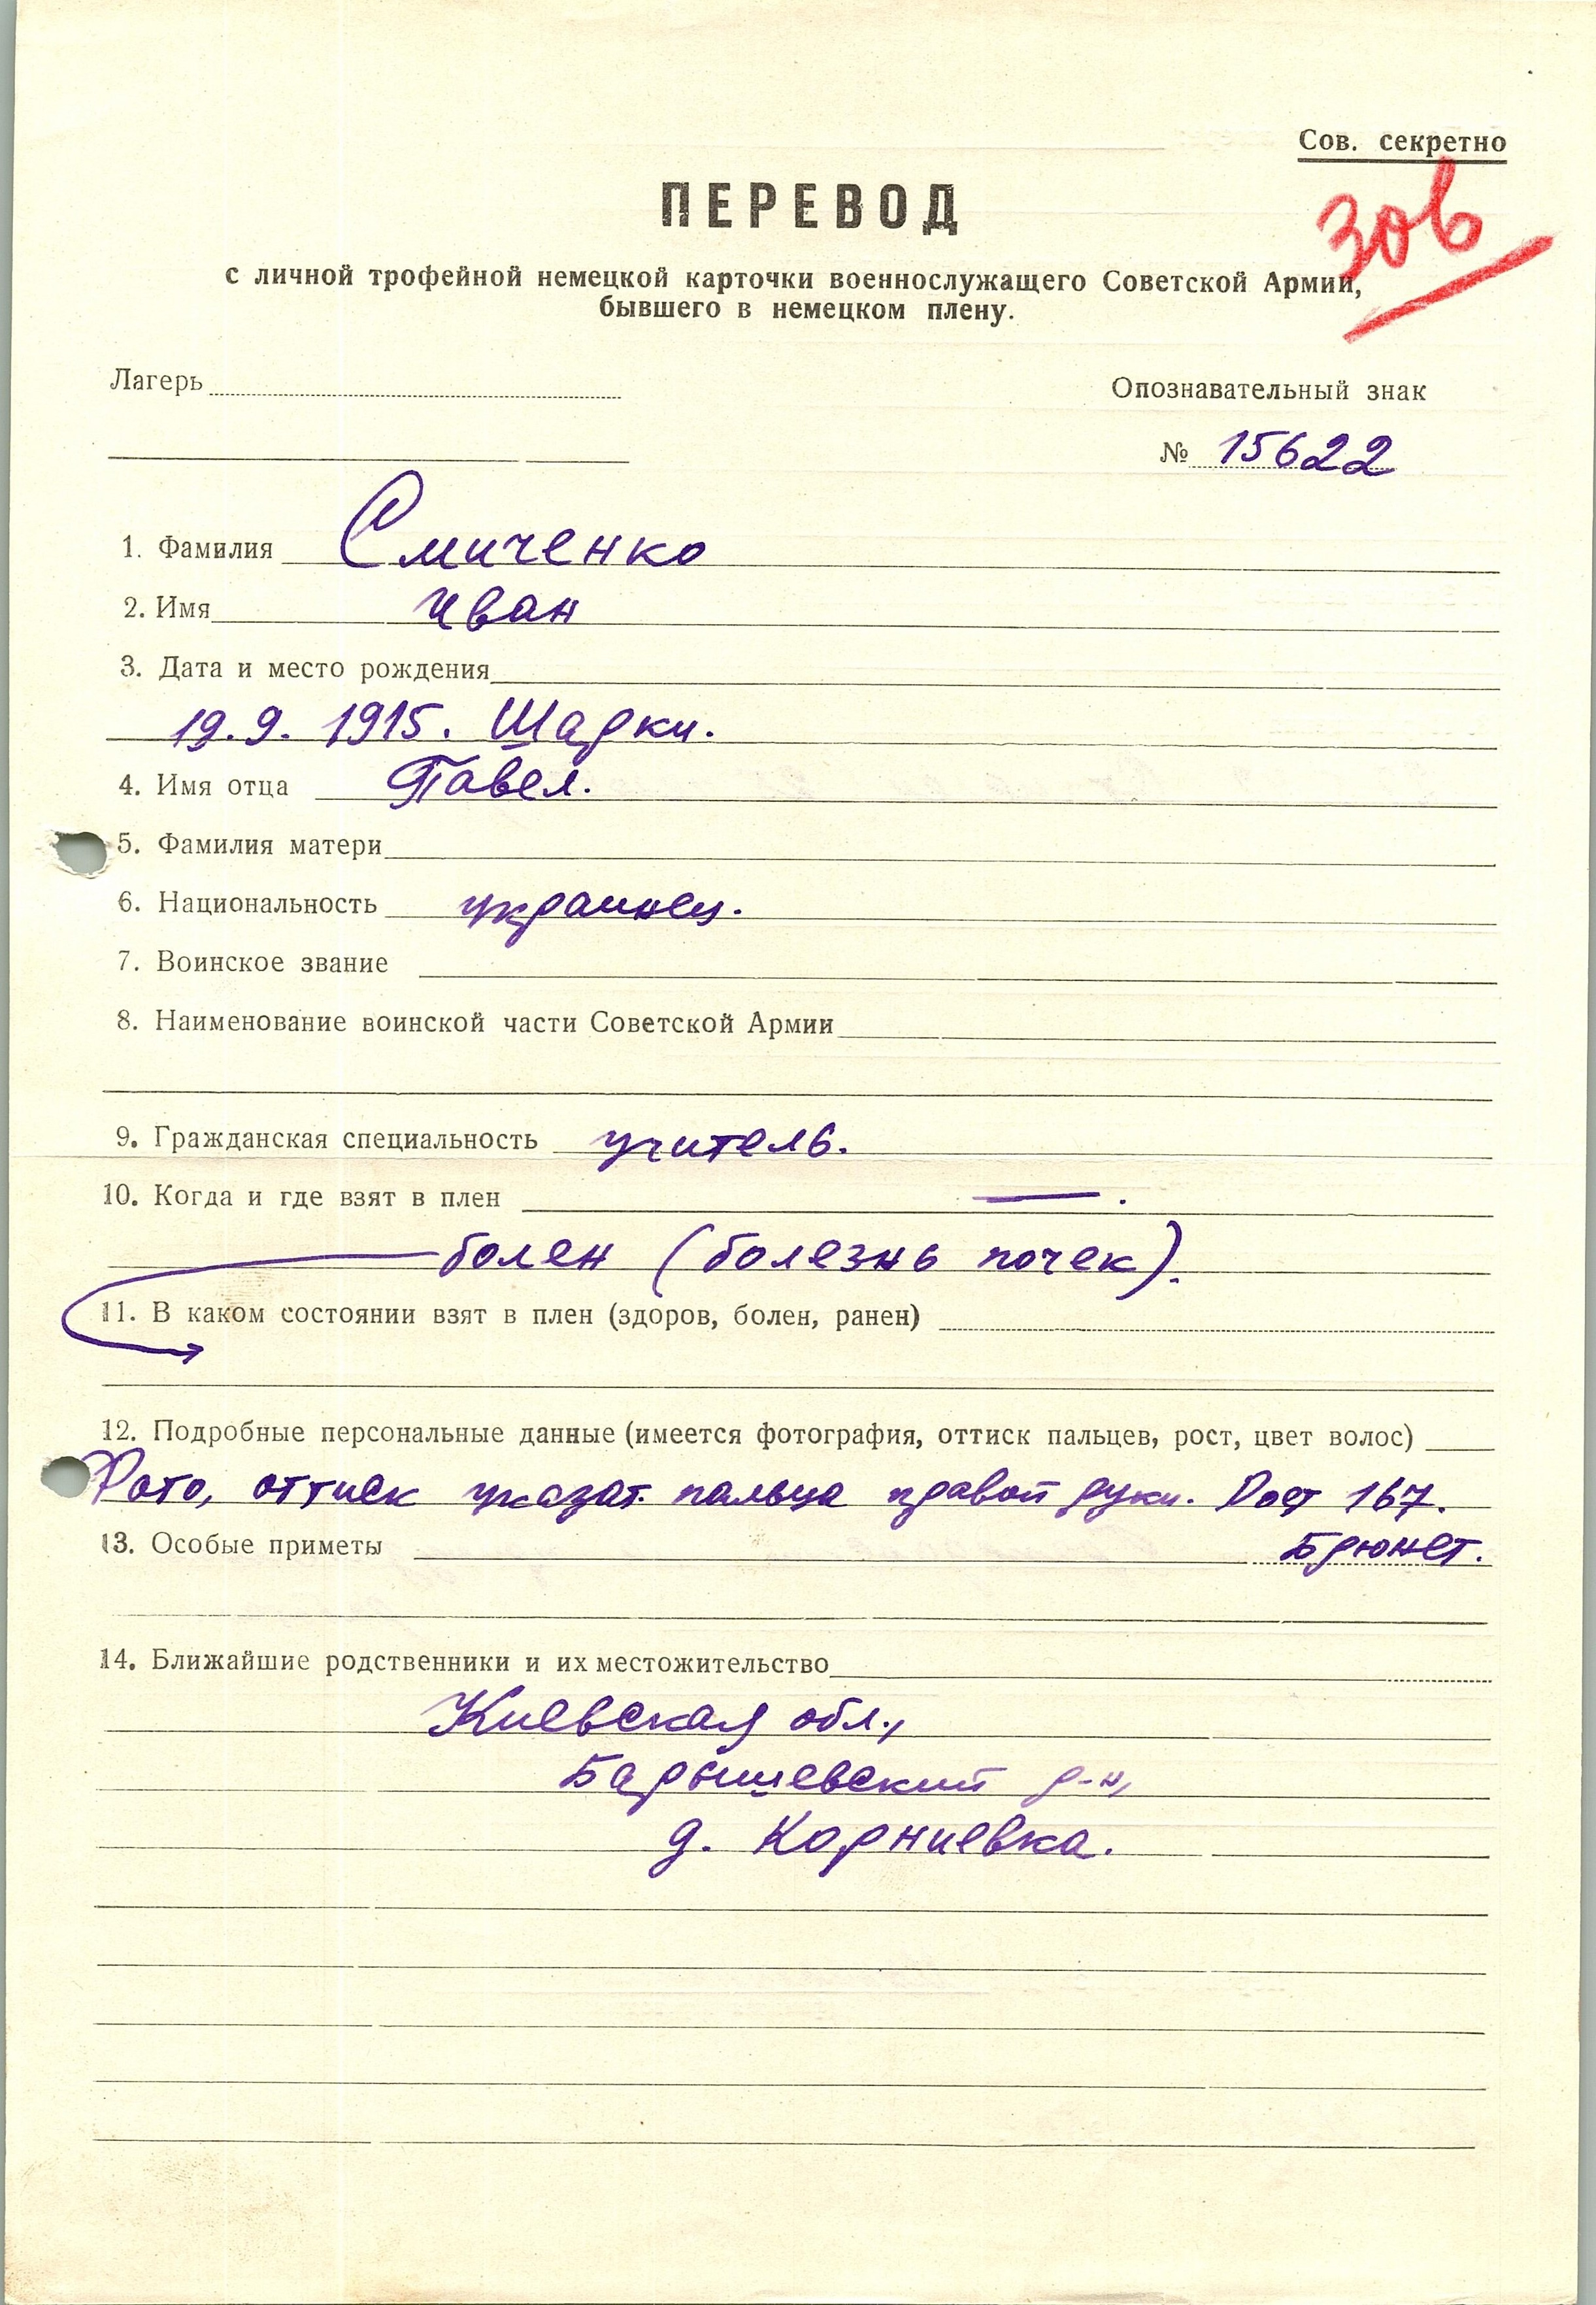 Сов. секретно
зов
ПЕРЕВОД
с личной трофейной немецкой карточки военнослужащего Советской Армии,
бывшего в немецком плену.
Лагерь
Опознавательный знак
№ 15622
1. Фамилия Смиченко
2. Имя Иван
3. Дата и место рождения
19.9. 1915. Шарки.
4. Имя отца Павел.
5. Фамилия матери
6. Национальность украинец.
7. Воинское звание
8. Наименование воинской части Советской Армии
9. Гражданская специальность учитель.
10. Когда и где взят в плен — .
болен (болезнь почек).
11. В каком состоянии взят в плен (здоров, болен, ранен)
12. Подробные персональные данные (имеется фотография, оттиск пальцев, рост, цвет волос)
Фото, оттиск указат. пальца правой руки. Рост 167.
13. Особые приметы Брюнет.
14. Ближайшие родственники и их местожительство
Киевская обл.,
Барышевский р-н,
д. Корниевка.